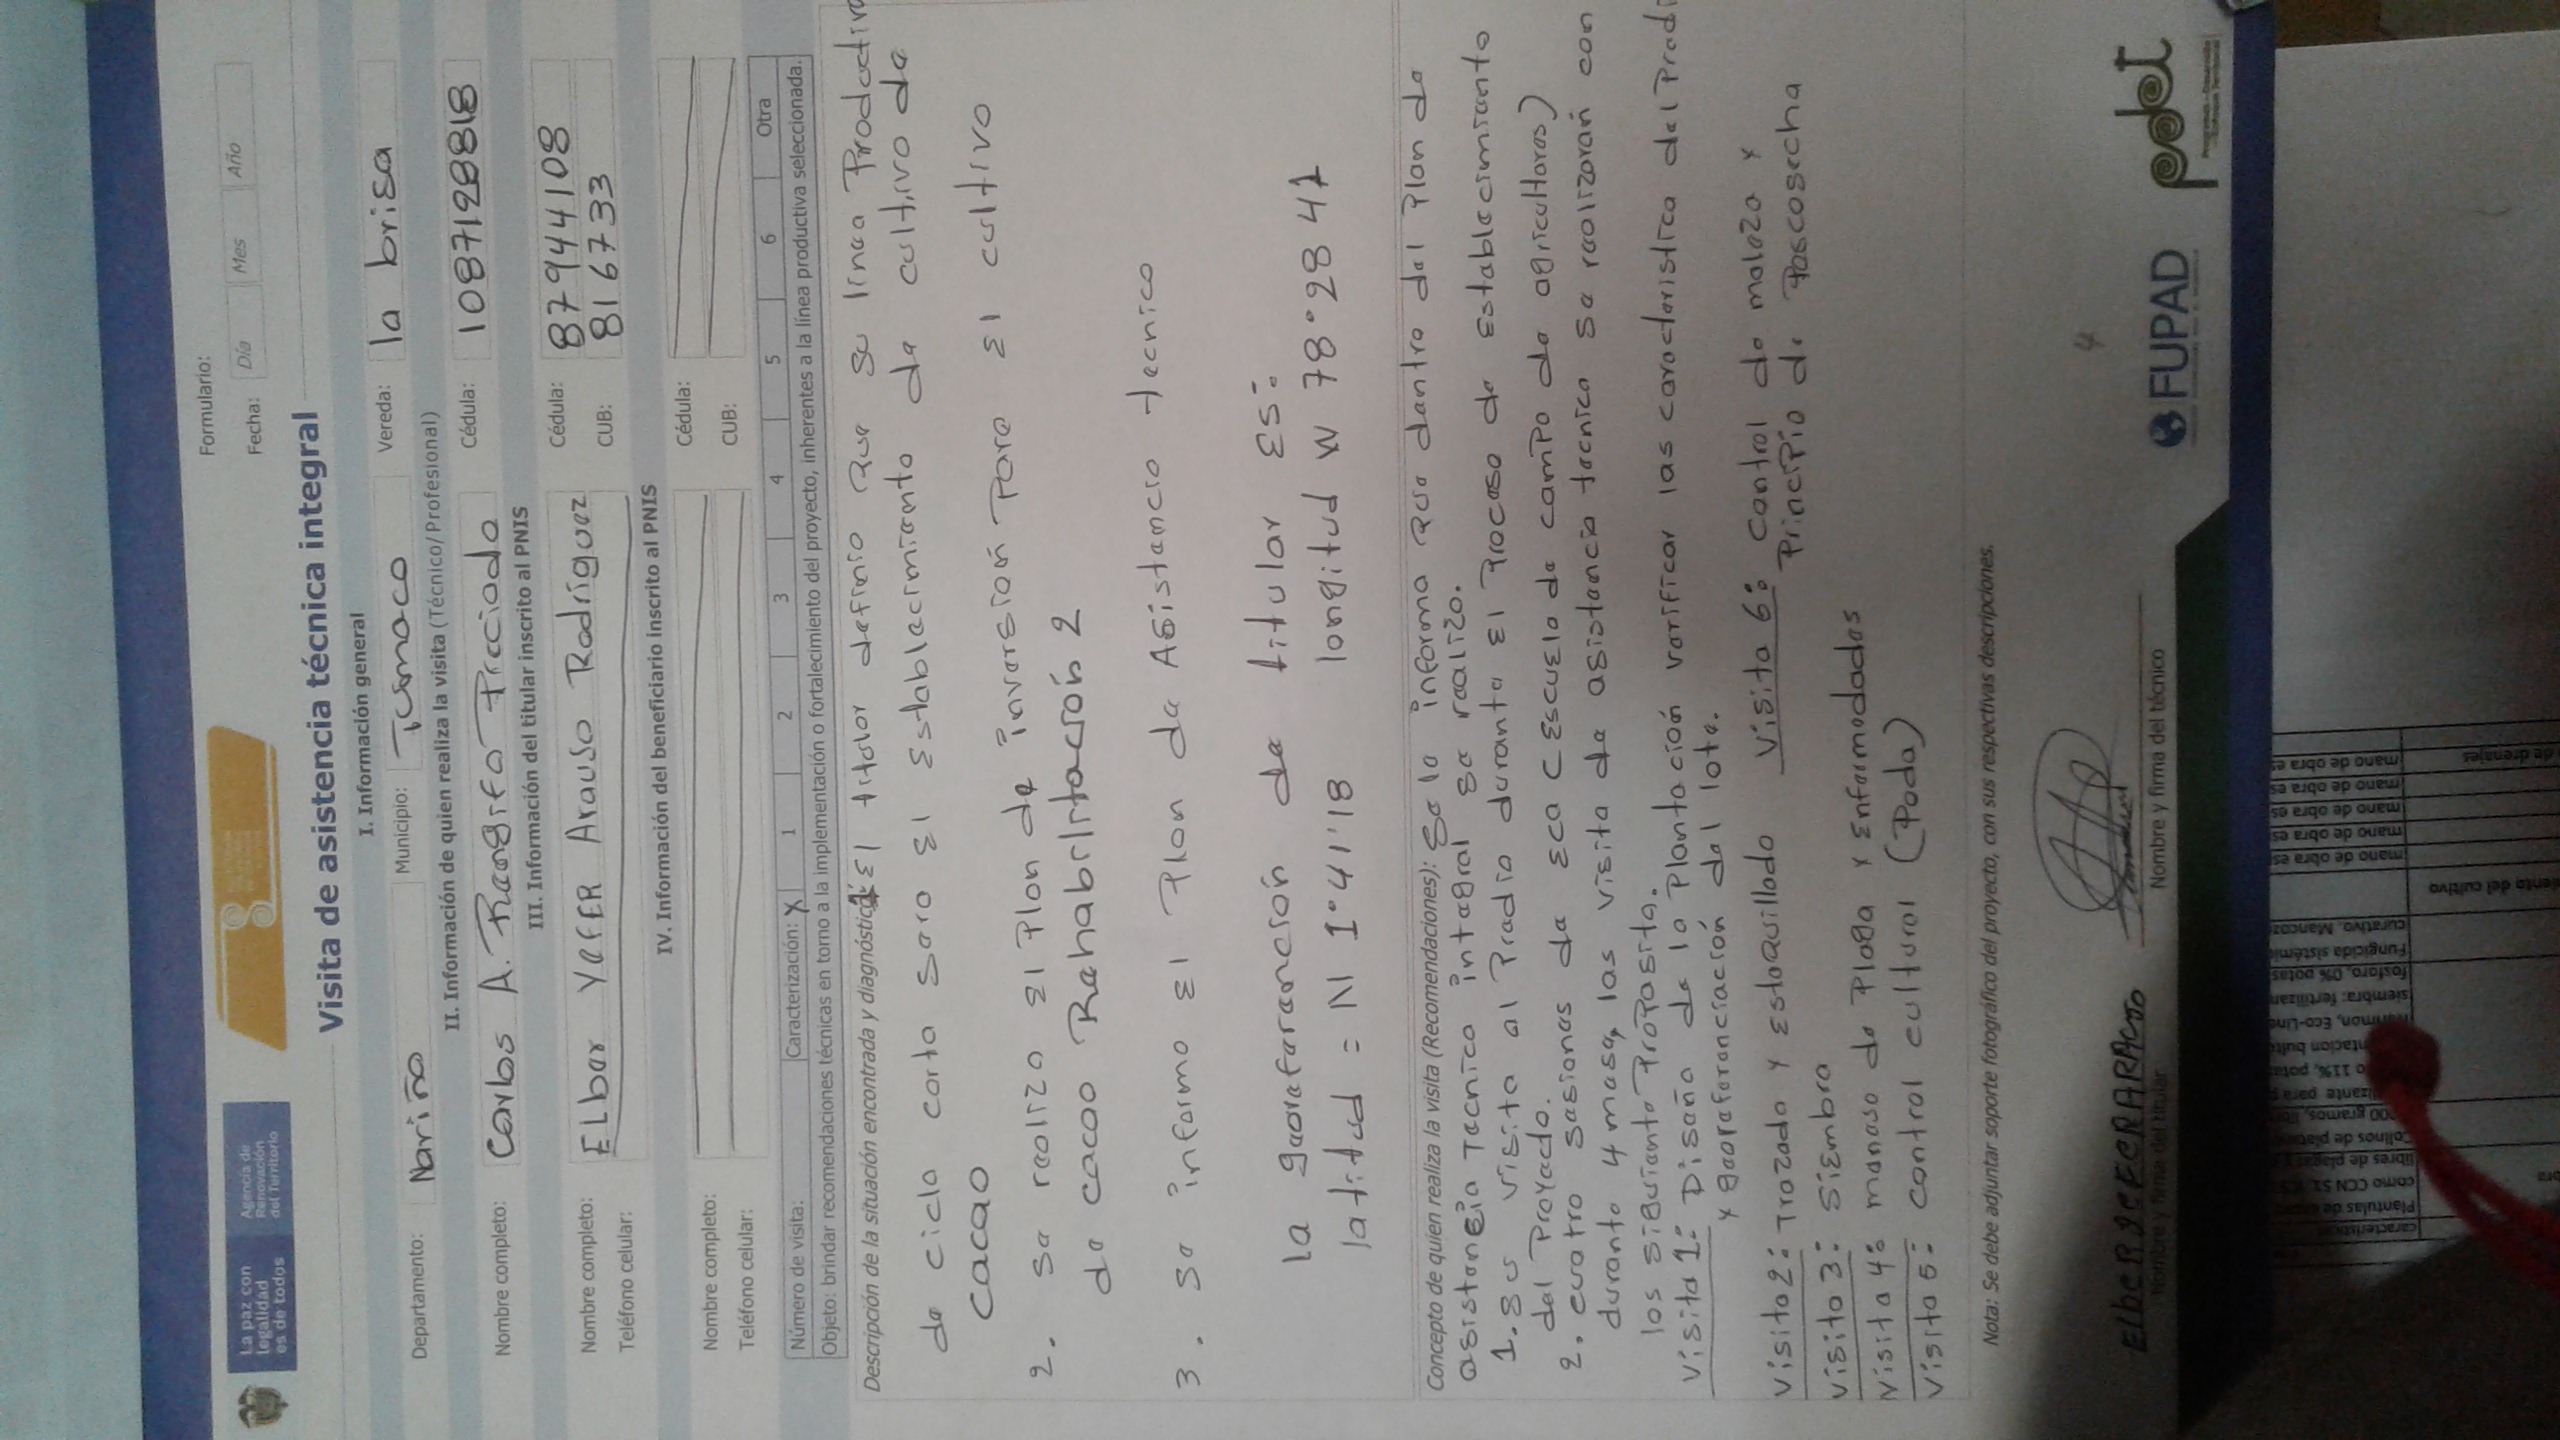 La paz con
legalidad
es de todos
Agencia de
Renovación
del Territorio
Formulario:
Fecha: Día Mes Año
Visita de asistencia técnica integral
I. Información general
Departamento: Nariño Municipio: Tumaco Vereda: la brisa
II. Información de quien realiza la visita (Técnico/Profesional)
Nombre completo: Carlos A. Rengifo Preciado Cédula: 1087128818
III. Información del titular inscrito al PNIS
Nombre completo: Elbar Yefer Arauso Rodríguez Cédula: 87944108
Teléfono celular: CUB: 816733
IV. Información del beneficiario inscrito al PNIS
Nombre completo: Cédula:
Teléfono celular: CUB:
Número de visita: Caracterización: X 1 2 3 4 5 6 Otra
Objeto: brindar recomendaciones técnicas en torno a la implementación o fortalecimiento del proyecto, inherentes a la línea productiva seleccionada.
Descripción de la situación encontrada y diagnóstico: El titular definio que su linea Productiva
de ciclo corto sera El Establecimiento de cultivo de
cacao
2. se realizo El Plan de inversión Para El cultivo
de cacao Rehabilitación 2
3. se informo El Plan de Asistencia tecnico
la georeferención de titular Es:
latitud = N 1°41'18 longitud W 78°28 41
Concepto de quien realiza la visita (Recomendaciones): se le informa que dentro del Plan de
asistencia Tecnico integral se realizo.
1. su visita al Predio durante El Proceso de Establecimiento
del Proyecto.
2. cuatro sesiones de Eca (Escuela de campo de agricultores)
durante 4 mese, las visita de asistencia tecnica se realizarán con
los siguiente Proposito.
Visita 1: Diseño de la Plantación verificar las caracteristica del Predi
y georeferenciación del lote.
Visita 2: Trazado y Estoquillado Visita 6: control de maleza y
Principio de Poscosecha
Visita 3: Siembra
Visita 4: maneso de Plaga y Enfermedades
Visita 5: control cultural (Poda)
Nota: Se debe adjuntar soporte fotográfico del proyecto, con sus respectivas descripciones.
Nombre y firma del titular
Nombre y firma del técnico
4
FUPAD
pdet
mano de obra es
mano de obra es
mano de obra es
mano de obra es
mano de obra es
de drenajes
miento del cultivo
curativo. Mancoz
Fungicida sistémi
fosforo, 0% potas
siembra: fertilizan